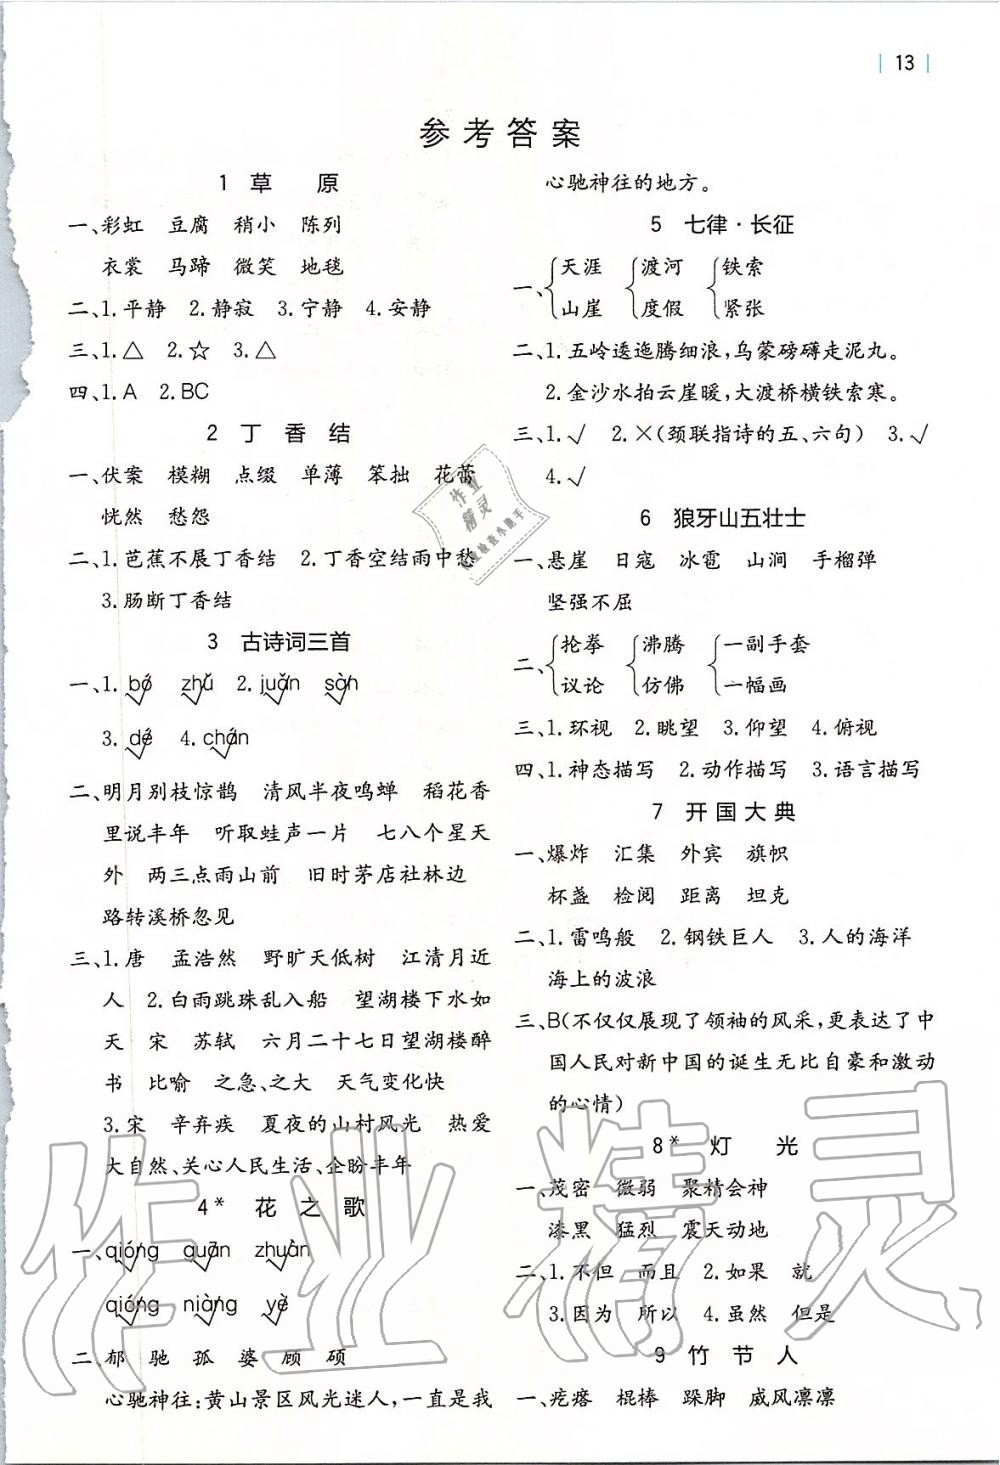 13
参考答案
1 草 原
一、彩虹 豆腐 稍小 陈列
衣裳 马蹄 微笑 地毯
二、1.平静 2.静寂 3.宁静 4.安静
三、1.△ 2.☆ 3.△
四、1.A 2.BC
2 丁 香 结
一、伏案 模糊 点缀 单薄 笨拙 花蕾
恍然 愁怨
二、1.芭蕉不展丁香结 2.丁香空结雨中愁
3.肠断丁香结
3 古诗词三首
一、1.bó zhǔ 2.juān sòn
3.dé 4.chán
二、明月别枝惊鹊 清风半夜鸣蝉 稻花香
里说丰年 听取蛙声一片 七八个星天
外 两三点雨山前 旧时茅店社林边
路转溪桥忽见
三、1.唐 孟浩然 野旷天低树 江清月近
人 2.白雨跳珠乱入船 望湖楼下水如
天 宋 苏轼 六月二十七日望湖楼醉
书 比喻 之急、之大 天气变化快
3.宋 辛弃疾 夏夜的山村风光 热爱
大自然、关心人民生活、企盼丰年
4* 花 之 歌
一、qióng guān zhuàn
qióng niàng yè
二、郁 驰 孤 婆 顾 硕
心驰神往:黄山景区风光迷人,一直是我
心驰神往的地方。
5 七律·长征
一、{天涯 {渡河 {铁索
山崖 度假 紧张
二、1.五岭逶迤腾细浪,乌蒙磅礴走泥丸。
2.金沙水拍云崖暖,大渡桥横铁索寒。
三、1.√ 2.×(颈联指诗的五、六句) 3.√
4.√
6 狼牙山五壮士
一、悬崖 日寇 冰雹 山涧 手榴弹
坚强不屈
二、{抡拳 {沸腾 {一副手套
议论 仿佛 一幅画
三、1.环视 2.眺望 3.仰望 4.俯视
四、1.神态描写 2.动作描写 3.语言描写
7 开国大典
一、爆炸 汇集 外宾 旗帜
杯盏 检阅 距离 坦克
二、1.雷鸣般 2.钢铁巨人 3.人的海洋
海上的波浪
三、B(不仅仅展现了领袖的风采,更表达了中
国人民对新中国的诞生无比自豪和激动
的心情)
8* 灯 光
一、茂密 微弱 聚精会神
漆黑 猛烈 震天动地
二、1.不但 而且 2.如果 就
3.因为 所以 4.虽然 但是
9 竹 节 人
一、疙瘩 棍棒 跺脚 威风凛凛
作业精灵
作业
精灵